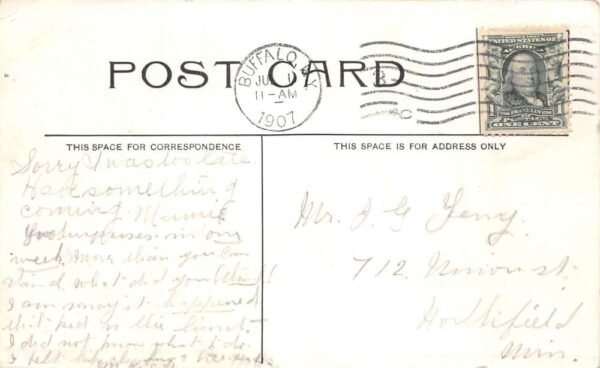 POST CARD
BUFFALO, N.Y.
JU 1
11-AM
1907
UNITED STATES OF AMERICA
FRANKLIN
ONE CENT
THIS SPACE FOR CORRESPONDENCE
THIS SPACE FOR ADDRESS ONLY
Sorry I was too late.
Have something
coming. Minnie
surprises in one
week. More than you can
stand. what did you think!
I am sorry it happened
that kid is the limit.
I did not know what to do.
I felt
Mr. J. G.
712 Union st.
Northfield
Minn.